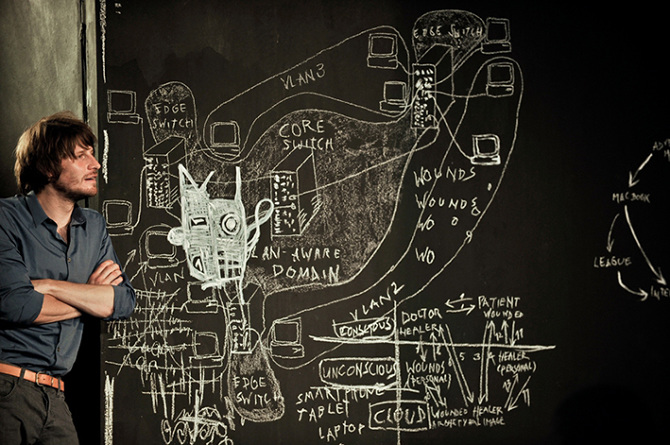 EDGE SWITCH
VLAN3
EDGE
SWITCH
CORE
SWITCH
WOUNDS
WOUNDS
WO
WO
LAN-AWARE
DOMAIN
VLAN
VLAN2
CONSCIOUS
DOCTOR
HEALER
PATIENT
WOUNDED
UNCONSCIOUS
WOUNDS
(PERSONAL)
HEALER
(PERSONAL)
EDGE
SWITCH
SMARTPHONE
TABLET
LAPTOP
CLOUD
WOUNDED HEALER
ARCHETYPAL IMAGE
MACBOOK
LEAGUE